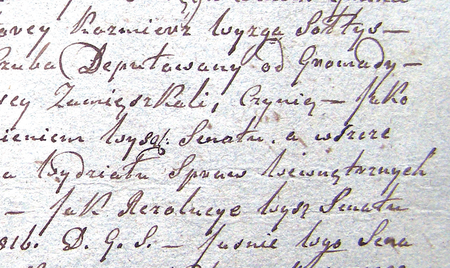 Kazmierz Wyrga Sołtys –
Deputowany od Gromady –
Zamięszkali, Czynię – Jako
ieniem Wysq: Senatu. a wszcze
a Wydziału Spraw Wewnętrznych
– Jak Rezolucye Wysz Senatu
816. D. G. S. – Jaśnie Wgo Sena